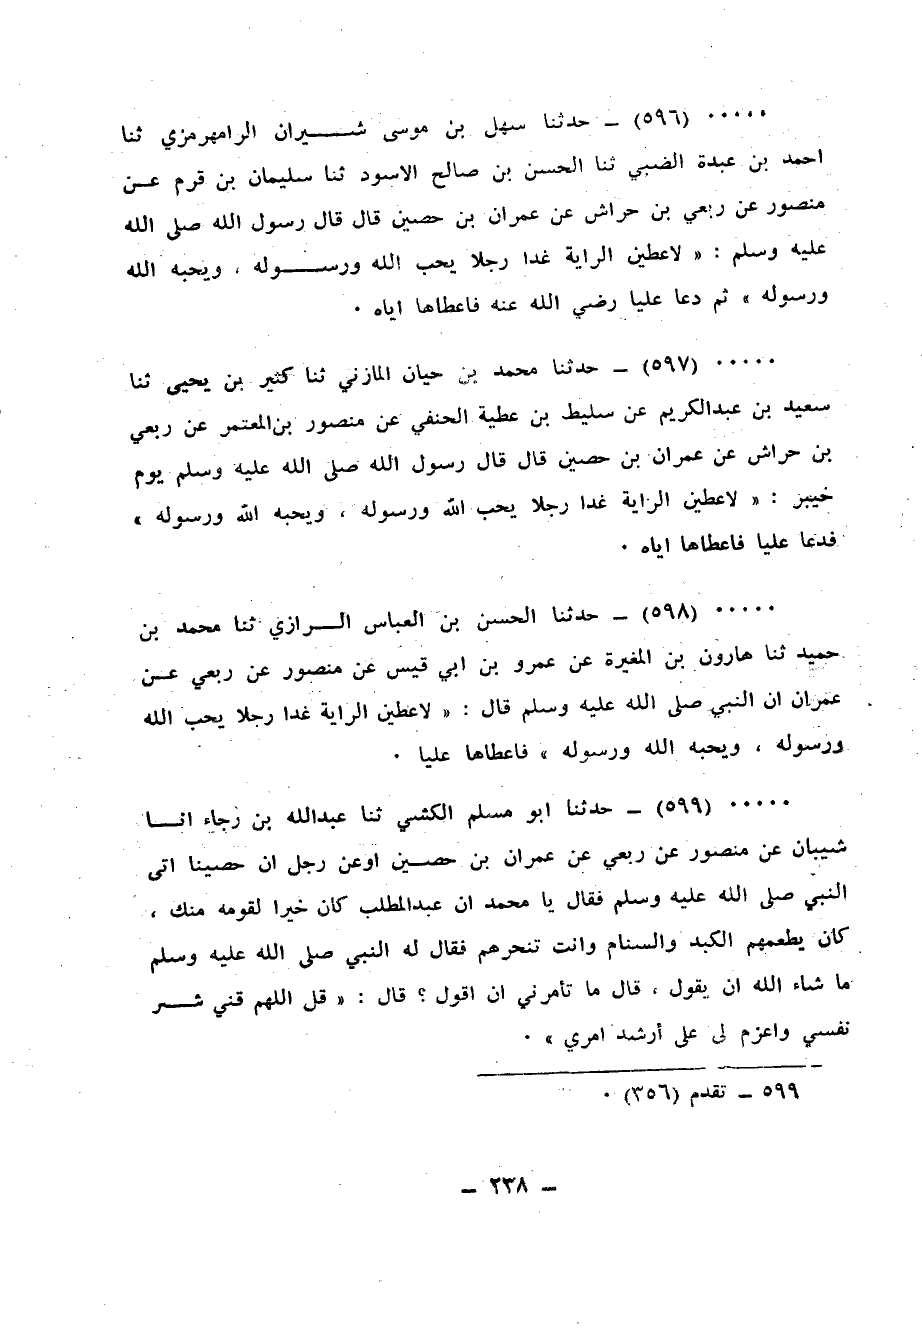 ٠٠٠٠٠ (٥٩٦) ــ حدثنا سهل بن موسى شـــــيران الرامهرمزي ثنا
احمد بن عبدة الضبي ثنا الحسن بن صالح الاسود ثنا سليمان بن قرم عــن
منصور عن ربعي بن حراش عن عمران بن حصين قال قال رسول الله صلى الله
عليه وسلم : « لاعطين الراية غدا رجلا يحب الله ورســـــوله ، ويحبه الله
ورسوله » ثم دعا عليا رضي الله عنه فاعطاها اياه ٠
٠٠٠٠٠ (٥٩٧) ــ حدثنا محمد بن حيان المازني ثنا كثير بن يحيى ثنا
سعيد بن عبدالكريم عن سليط بن عطية الحنفي عن منصور بن المعتمر عن ربعي
بن حراش عن عمران بن حصين قال قال رسول الله صلى الله عليه وسلم يوم
خيبز : « لاعطين الراية غدا رجلا يحب الله ورسوله ، ويحبه الله ورسوله »
فدعا عليا فاعطاها اياه ٠
٠٠٠٠٠ (٥٩٨) ــ حدثنا الحسن بن العباس الـــرازي ثنا محمد بن
حميد ثنا هارون بن المغيرة عن عمرو بن ابي قيس عن منصور عن ربعي عــن
عمران ان النبي صلى الله عليه وسلم قال : « لاعطين الراية غدا رجلا يحب الله
ورسوله ، ويحبه الله ورسوله » فاعطاها عليا ٠
٠٠٠٠٠ (٥٩٩) ــ حدثنا ابو مسلم الكشي ثنا عبدالله بن رجاء انـــا
شيبان عن منصور عن ربعي عن عمران بن حصــين اوعن رجل ان حصينا اتى
النبي صلى الله عليه وسلم فقال يا محمد ان عبدالمطلب كان خيرا لقومه منك ،
كان يطعمهم الكبد والسنام وانت تنحرهم فقال له النبي صلى الله عليه وسلم
ما شاء الله ان يقول ، قال ما تأمرني ان اقول ؟ قال : « قل اللهم قني شـــر
نفسي واعزم لى على أرشد امري » ٠
٥٩٩ ــ تقدم (٣٥٦) ٠
ــ ٢٣٨ ــ